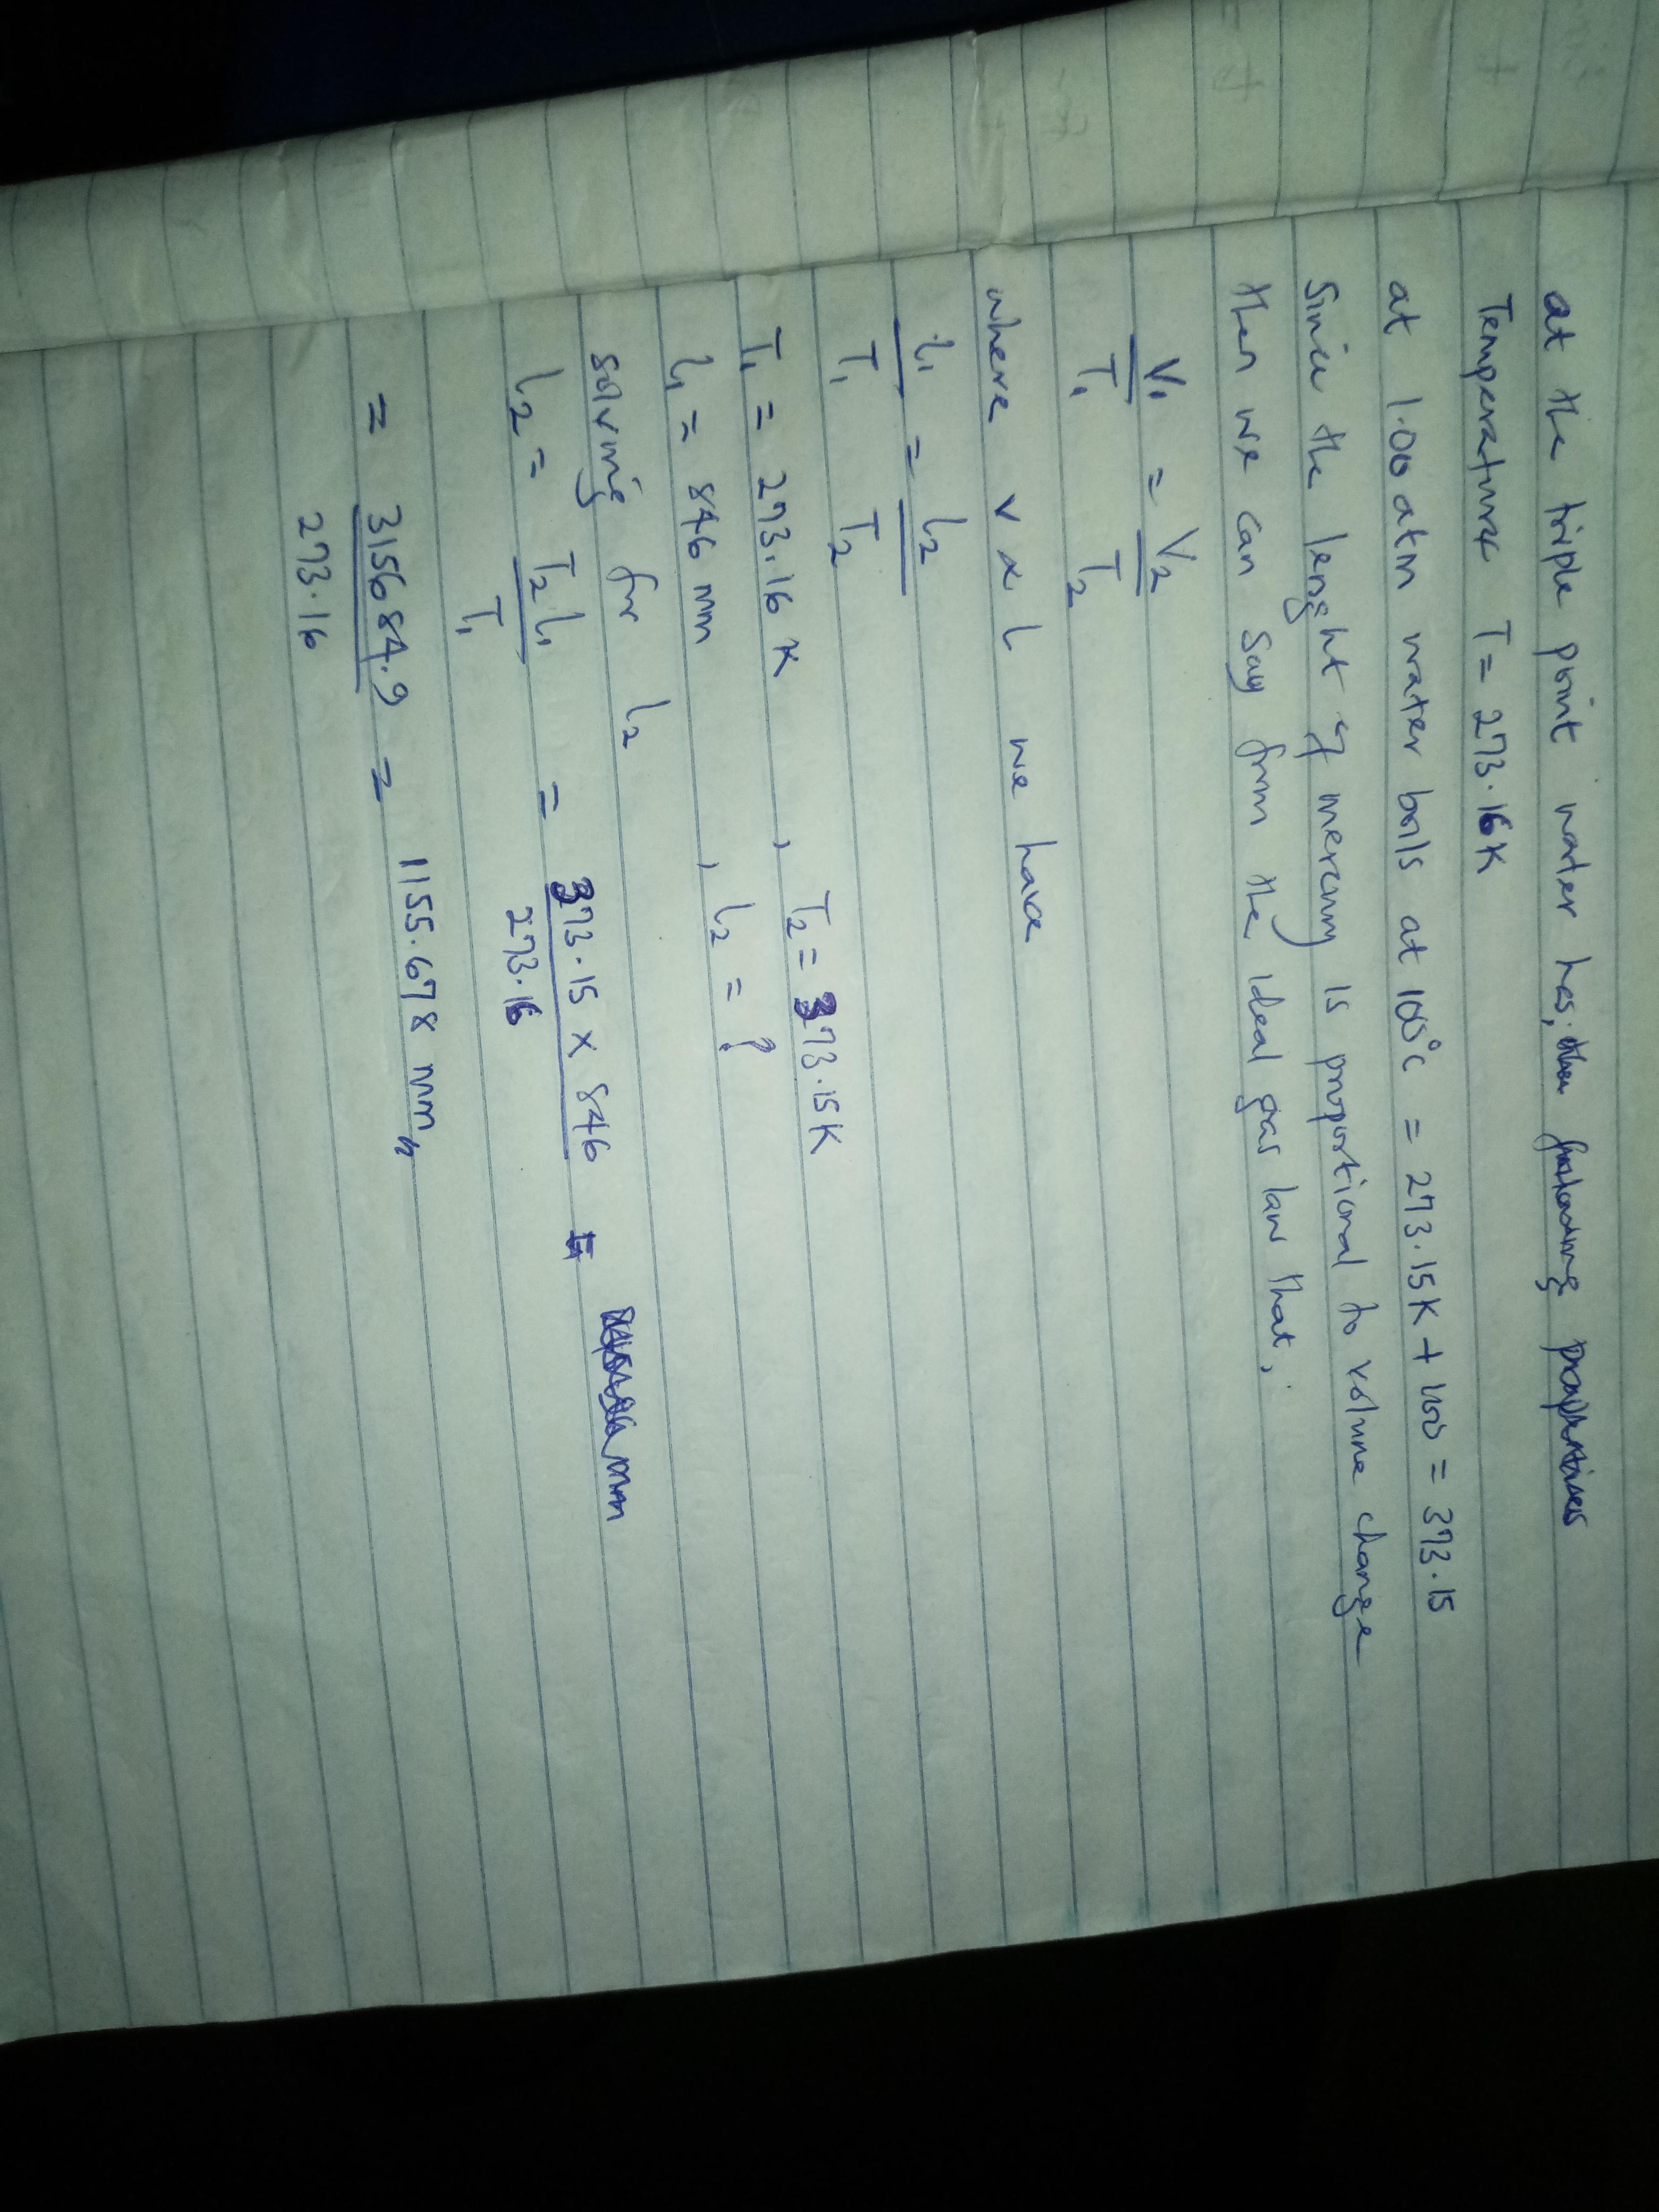 at the triple point water has, the following properties
Temperature T = 273.16K
at 1.00 atm water boils at 100°c = 273.15K + 100 = 373.15
Since the lenght of mercury is proportional to volume change
then we can say from the ideal gas law that,
V₁/T₁ = V₂/T₂
where v ∝ L we have
L₁/T₁ = L₂/T₂
T₁ = 273.16 K , T₂ = 373.15K
L₁ = 846 mm , L₂ = ?
solving for L₂
L₂ = T₂L₁/T₁ = 373.15 x 846/273.16 =
= 315684.9/273.16 = 1155.678 mm,,